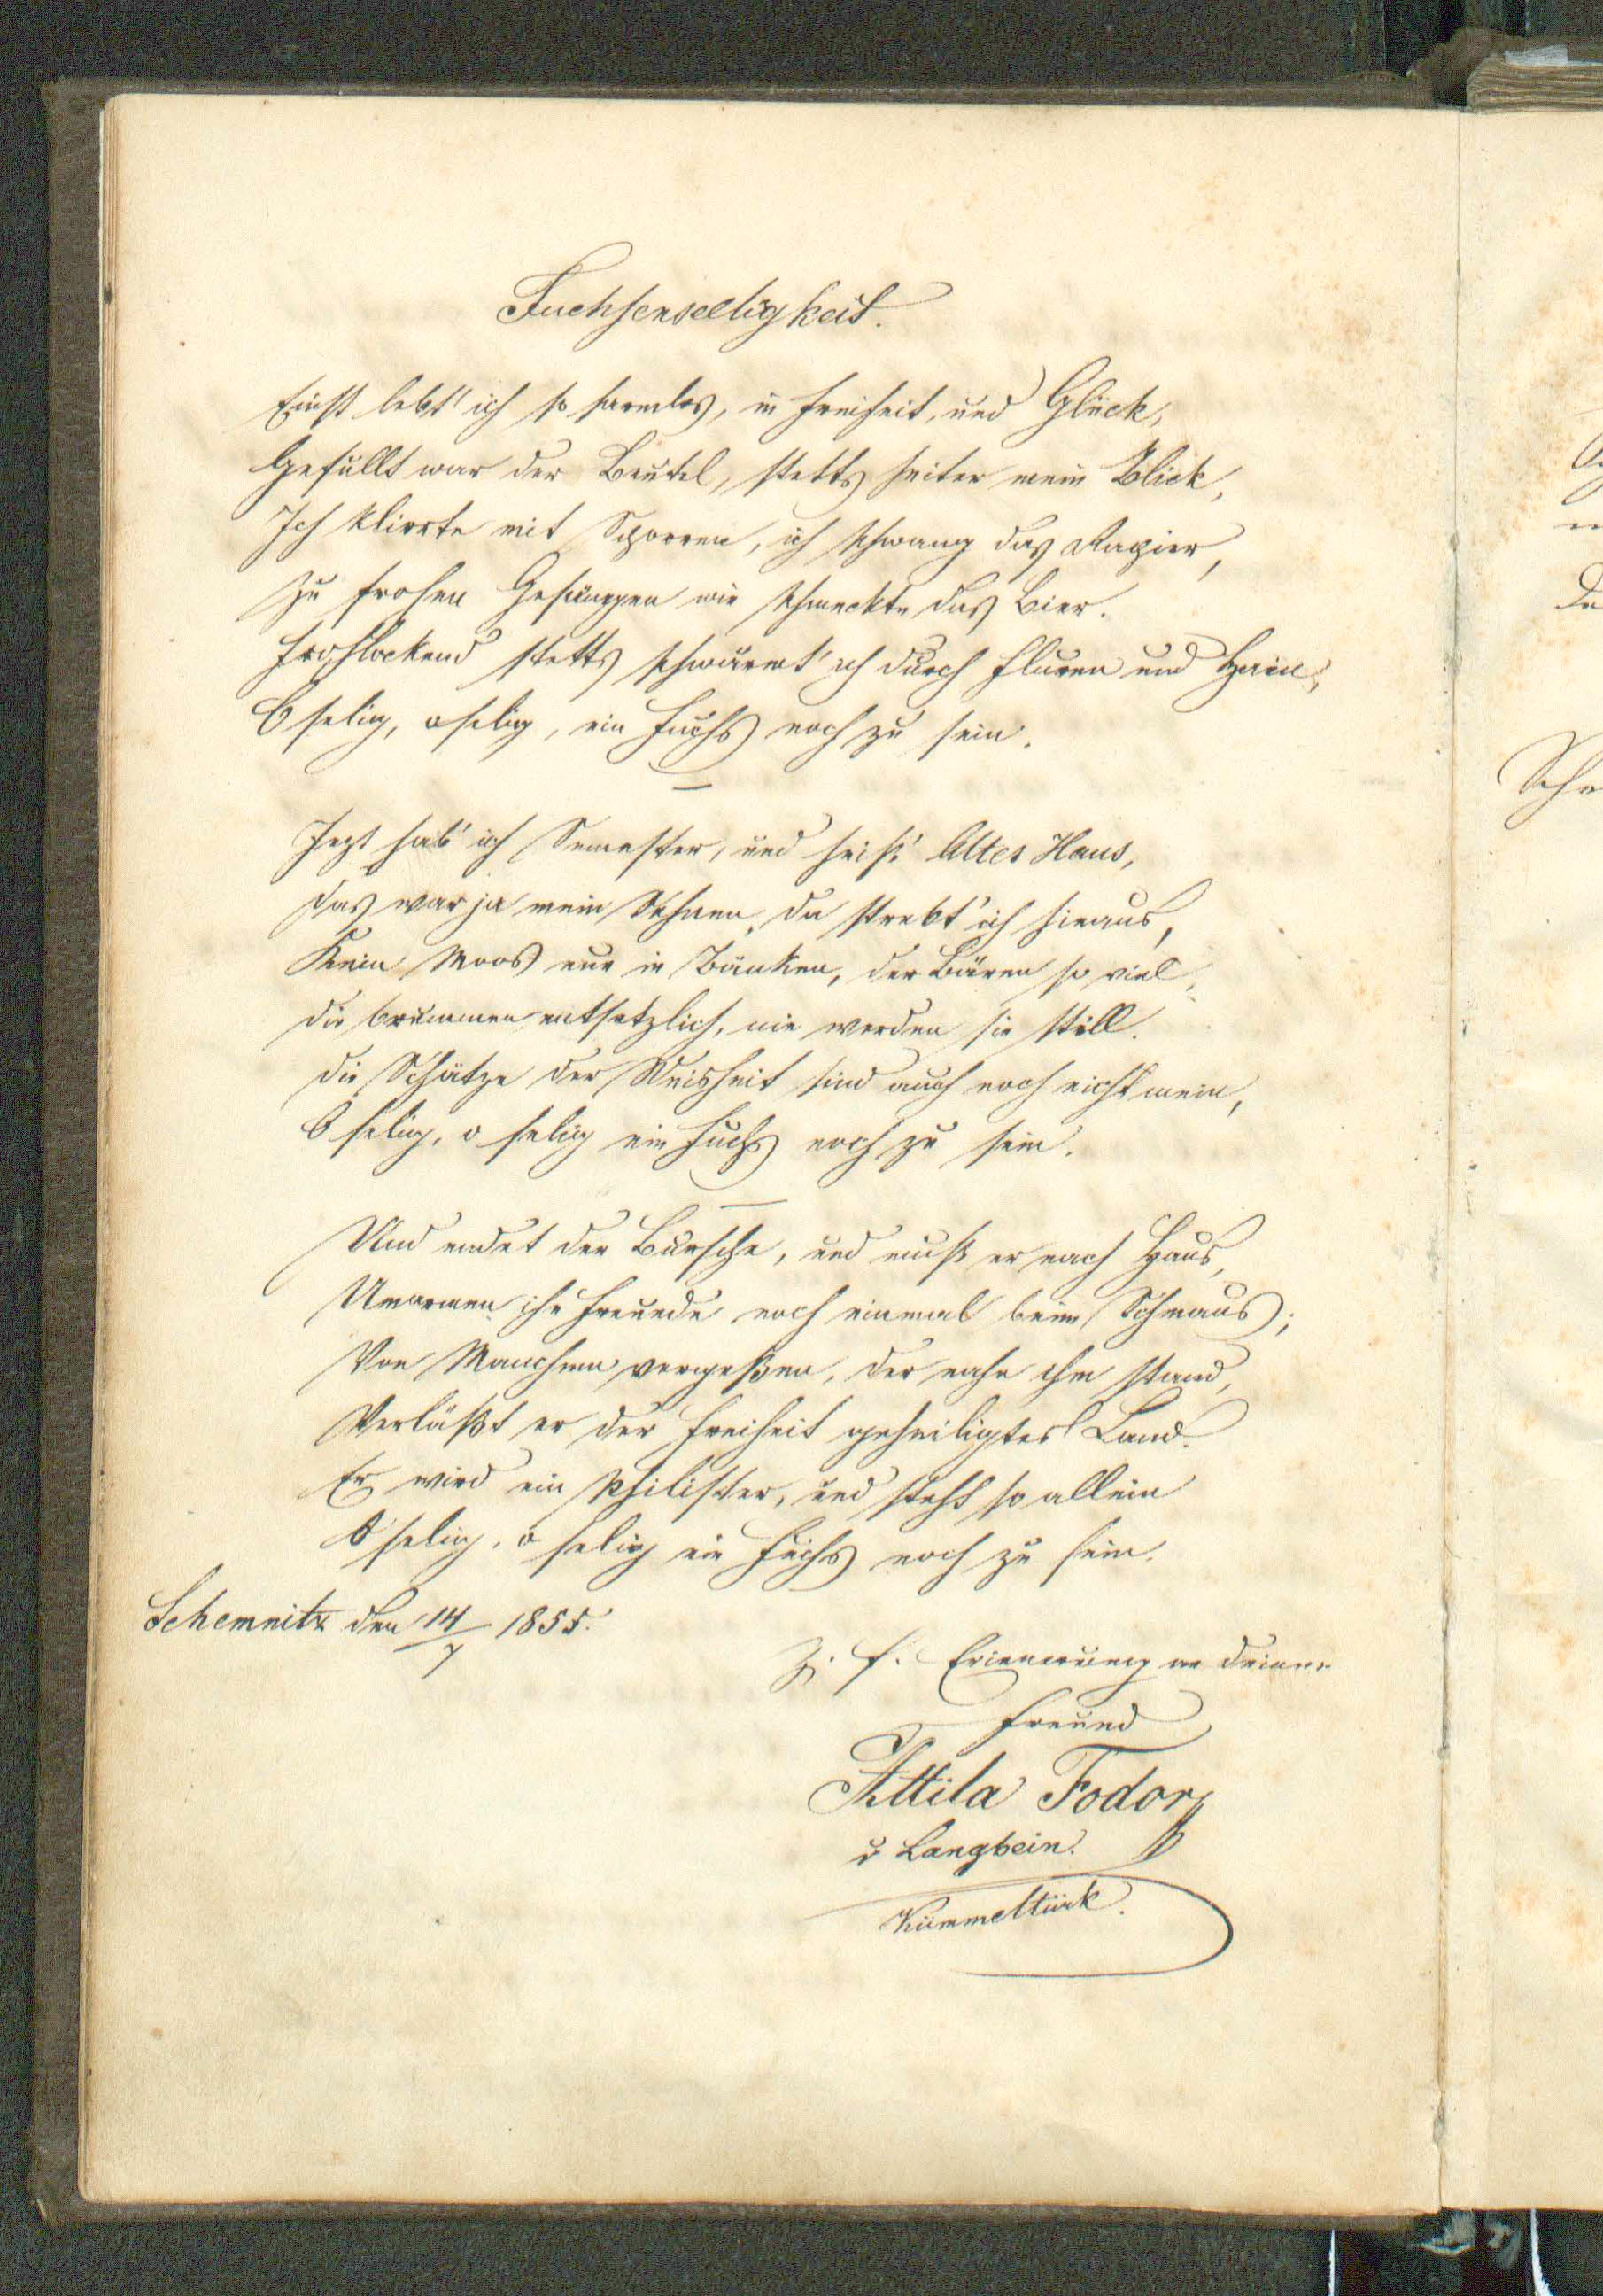 Fuchsenseeligkeit.
Einst lebt' ich so harmlos, in Freiheit, und Glück,
Gefüllt war der Beutel, stetts heiter mein Blick,
Ich klirrte mit Sporren, ich schwang das Rapier,
Zu frohen Gesängen wie schmeckte das Bier.
Frohlockend stetts schwärmt' ich durch Fluren und Hain,
O selig, o selig, ein Fuchs noch zu sein.
Jezt hab' ich Semester, und heiß' Altes Haus,
Das war ja mein Sehnen, da strebt' ich hinaus,
Kein Moos nur in Bänken, der Bären so viel,
Die brummen entsetzlich, nie werden sie still.
Die Schätze der Weisheit sind auch noch nicht mein,
O selig, o selig ein Fuchs noch zu sein.
Und endet der Bursche, und muß er nach Haus,
Umarmen ihn Freunde noch einmal beim Schmaus;
Von Manchem vergeßen, der nahe ihm stand,
Verläßt er der Freiheit geheiligtes Land.
Er wird ein Philister, und steht so allein
O selig, o selig ein Fuchs noch zu sein.
Schemnitz den 14/7 1855.
Z. f. Erinnerung an Deinen
Freund
Attila Fodor
v Langbein.
Kümmeltürk.